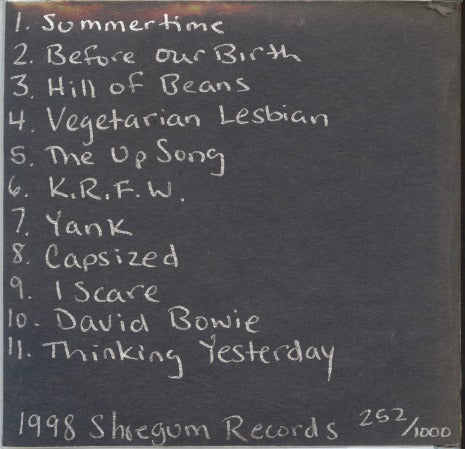 1. Summertime
2. Before our Birth
3. Hill of Beans
4. Vegetarian Lesbian
5. The Up Song
6. K.R.F.W.
7. Yank
8. Capsized
9. I Scare
10. David Bowie
11. Thinking Yesterday
1998 Shoegum Records 252/1000